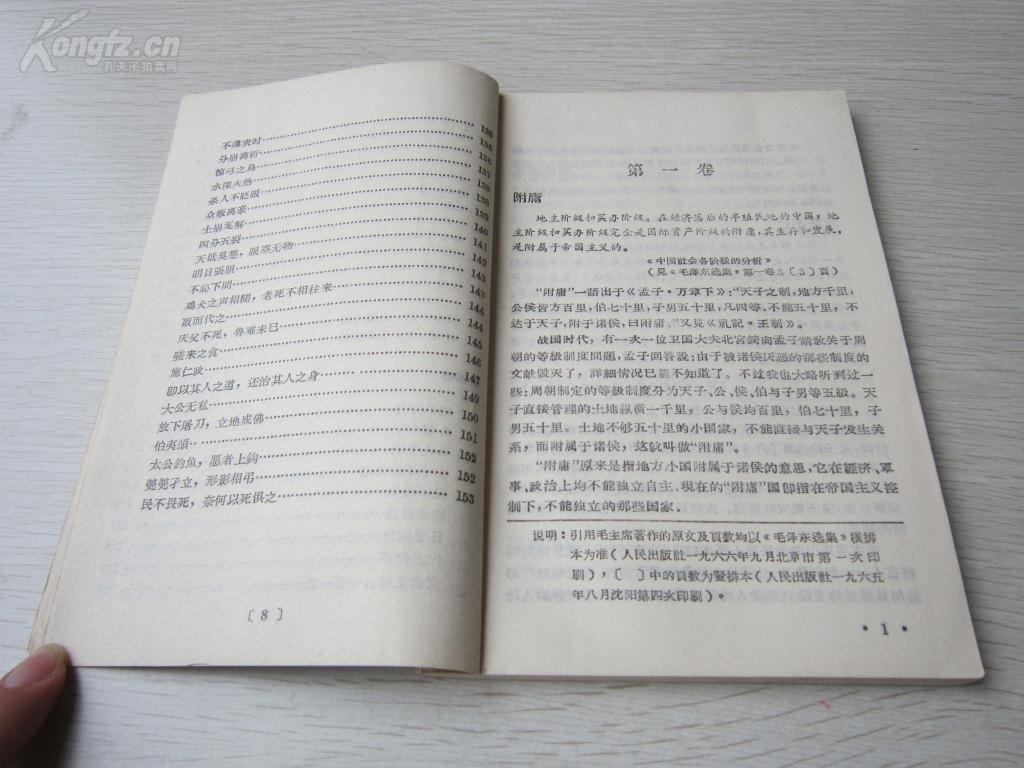 Kongfz.cn
孔夫子拍卖网
不违农时 135
分崩离析 136
惊弓之鸟 136
水深火热 137
圣人不眨眼 138
众叛离亲 138
土崩瓦解 139
四分五裂 140
天低吳楚，眼空无物 141
明目張胆 142
不恥下問 142
鸡犬之声相聞，老死不相往来 143
取而代之 144
庆父不死，魯难未已 144
嗟来之食 145
施仁政 146
即以其人之道，还治其人之身 147
大公无私 149
放下屠刀，立地成佛 150
伯夷頌 151
太公釣魚，愿者上鈎 152
煢煢孑立，形影相弔 152
民不畏死，奈何以死惧之 153
〔8〕
第一卷
附庸
地主阶級和买办阶級。在經济落后的半殖民地的中国，地
主阶級和买办阶級完全是国际資产阶級的附庸，其生存和发展，
是附属于帝国主义的。
《中国社会各阶級的分析》
（見《毛澤东选集》第一卷3〔3〕頁）
“附庸”一語出于《孟子·万章下》：“天子之制，地方千里，
公侯皆方百里，伯七十里，子男五十里，凡四等，不能五十里，不
达于天子，附于诸侯，曰附庸。”又見《礼記·王制》。
战国时代，有一次一位卫国大夫北宫錡向孟子請教关于周
朝的等級制度問題，孟子回答說：由于被诸侯厌恶的那些制度的
文献毁灭了，詳細情况已經不知道了。不过我也大略听到过一
些：周朝制定的等級制度分为天子、公、侯、伯与子男等五級。天
子直接管理的土地纵横一千里，公与侯均百里，伯七十里，子
男五十里。土地不够五十里的小国家，不能直接与天子发生关
系，而附属于诸侯，这就叫做“附庸”。
“附庸”原来是指地方小国附属于诸侯的意思，它在經济、軍
事、政治上均不能独立自主。現在的“附庸”国即指在帝国主义控
制下，不能独立的那些国家。
説明：引用毛主席著作的原文及頁数均以《毛泽东选集》横排
本为准（人民出版社一九六六年九月北京市第一次印
刷），〔　〕中的頁数为竪排本（人民出版社一九六五
年八月沈阳第四次印刷）。
·1·